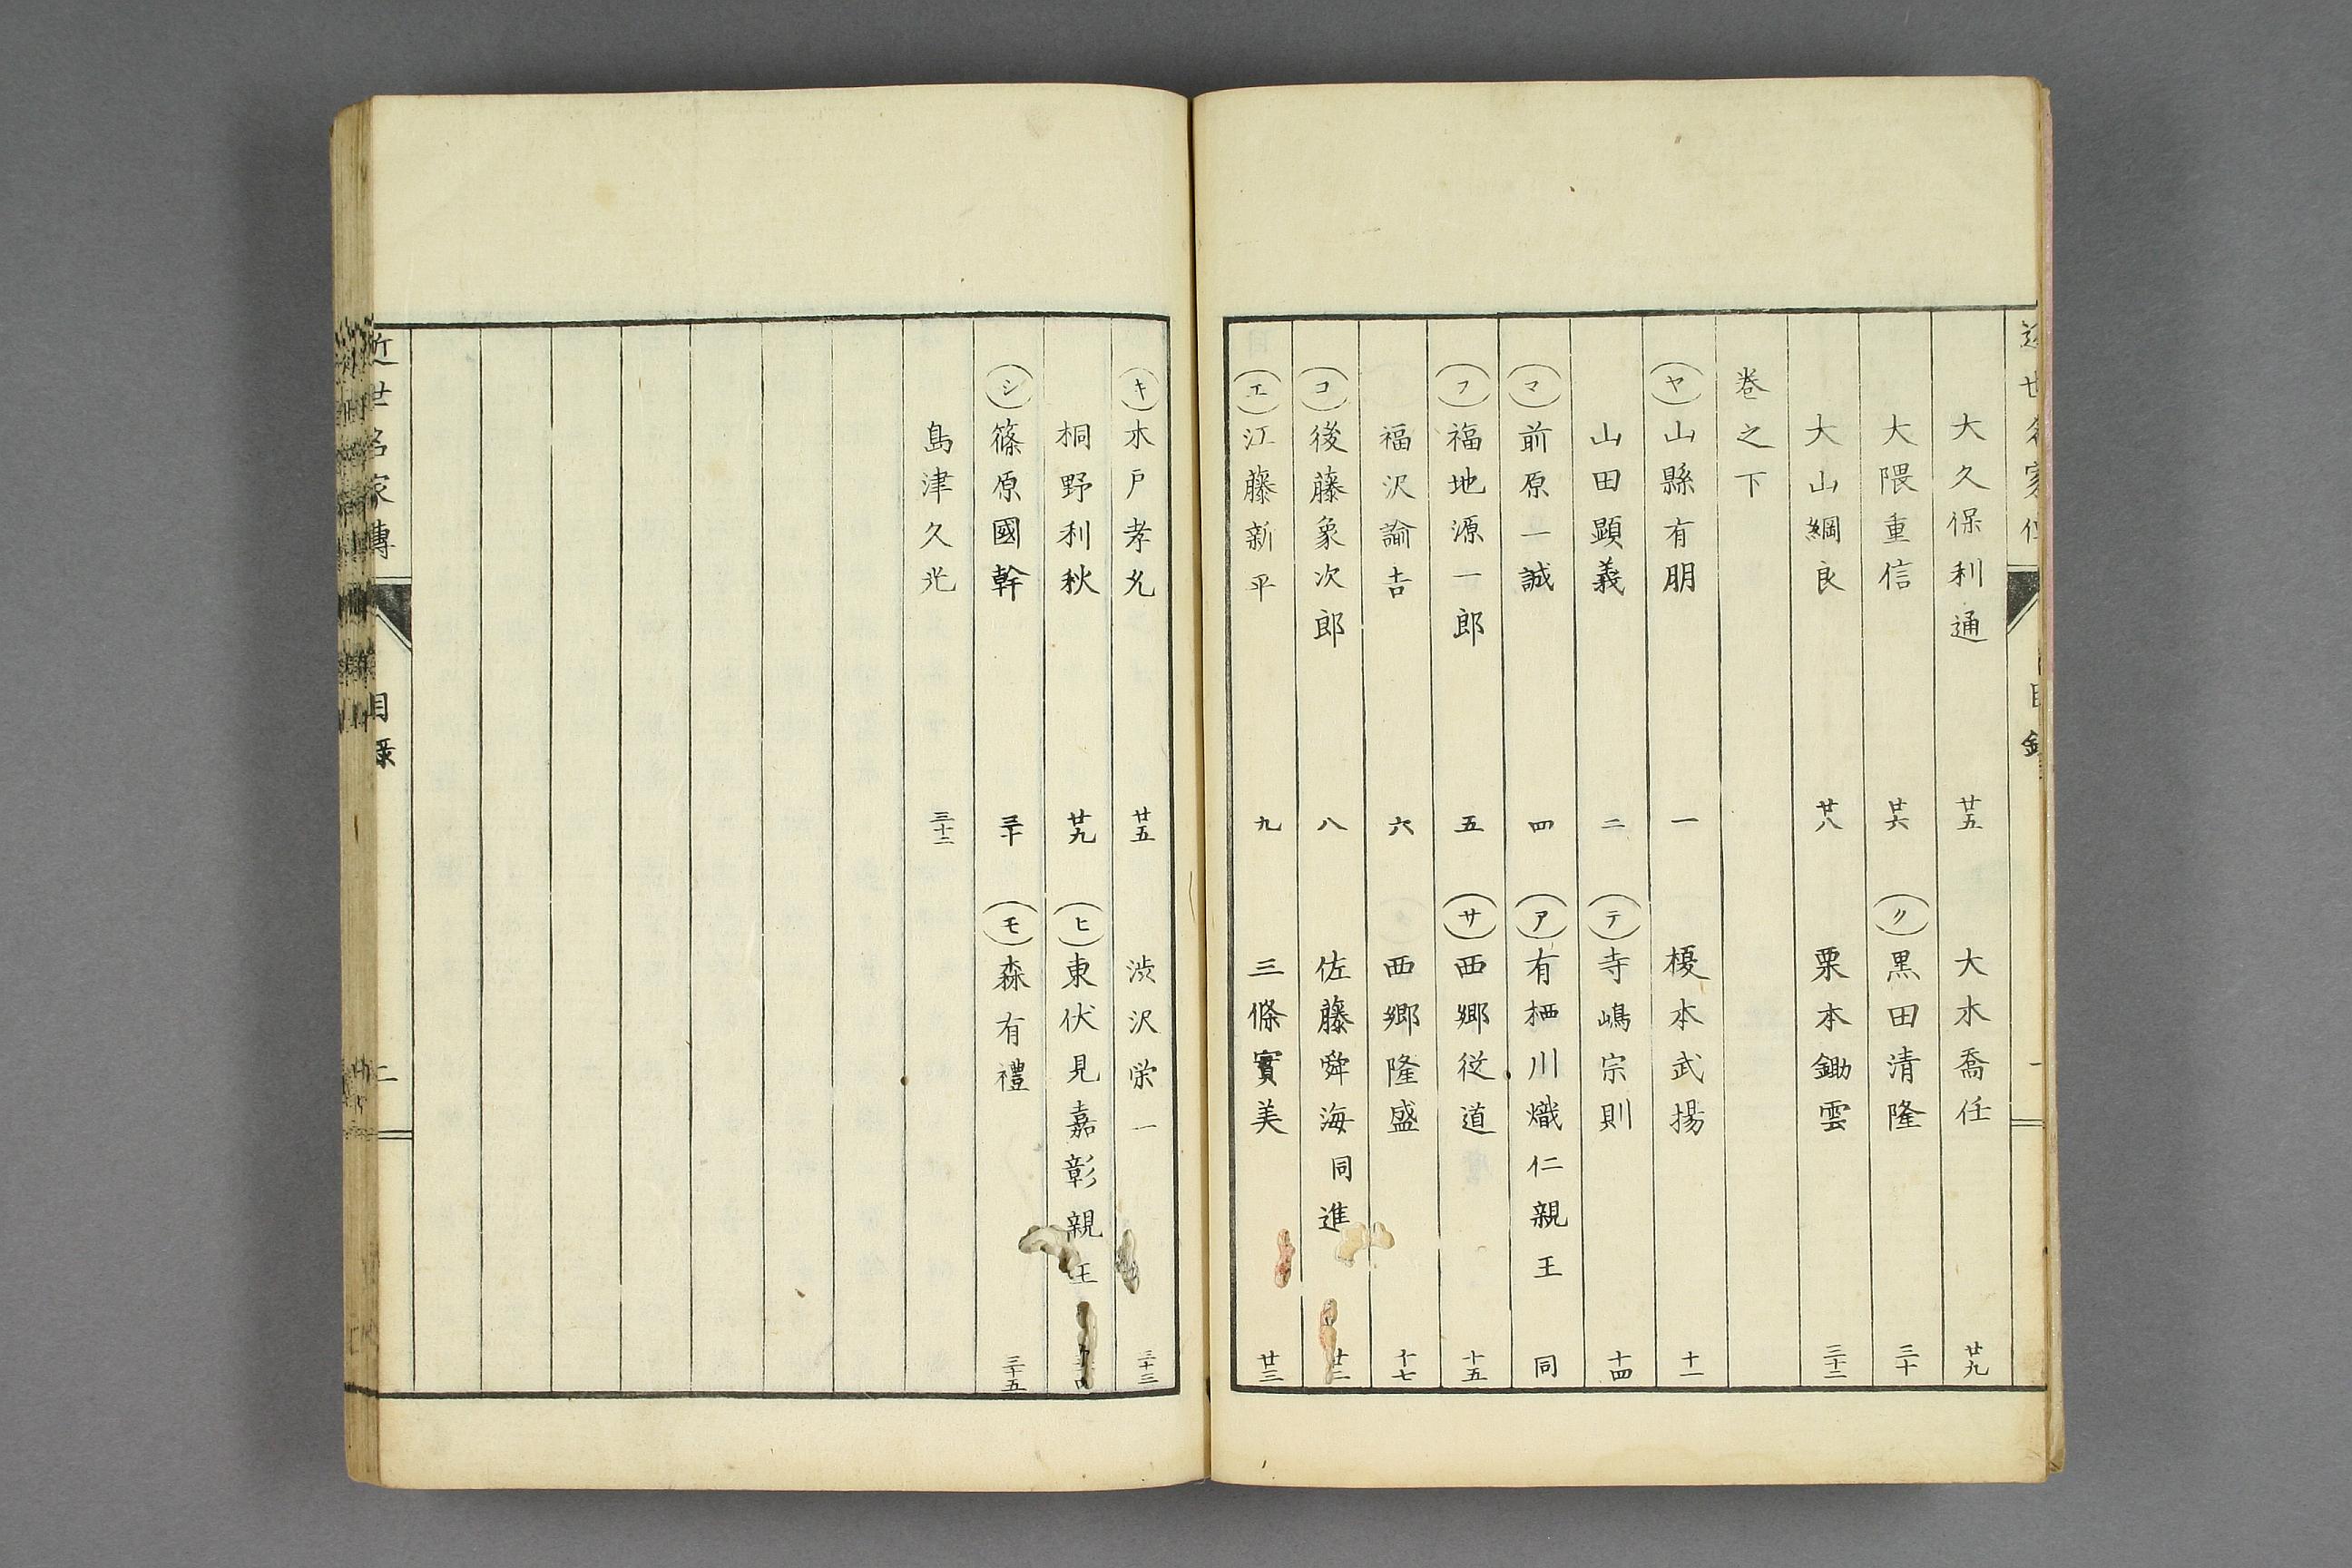 大久保利通 廿五 大木喬任 廿九
大隈重信 廿六 ク 黒田清隆 三十
大山綱良 廿八 栗本鋤雲 三十二
巻之下
ヤ 山縣有朋 一 榎本武揚 十一
山田顕義 二 テ 寺嶋宗則 十四
マ 前原一誠 四 ア 有栖川熾仁親王 同
フ 福地源一郎 五 サ 西郷従道 十五
福沢諭吉 六 西郷隆盛 十七
コ 後藤象次郎 八 佐藤舜海同進
エ 江藤新平 九 三條實美 廿三
キ 木戸孝允 廿五 渋沢栄一 三十三
桐野利秋 廿九 ヒ 東伏見嘉彰親王
シ 篠原國幹 三十 モ 森有禮 三十五
島津久光 三十二
近世名家傳 目録 二